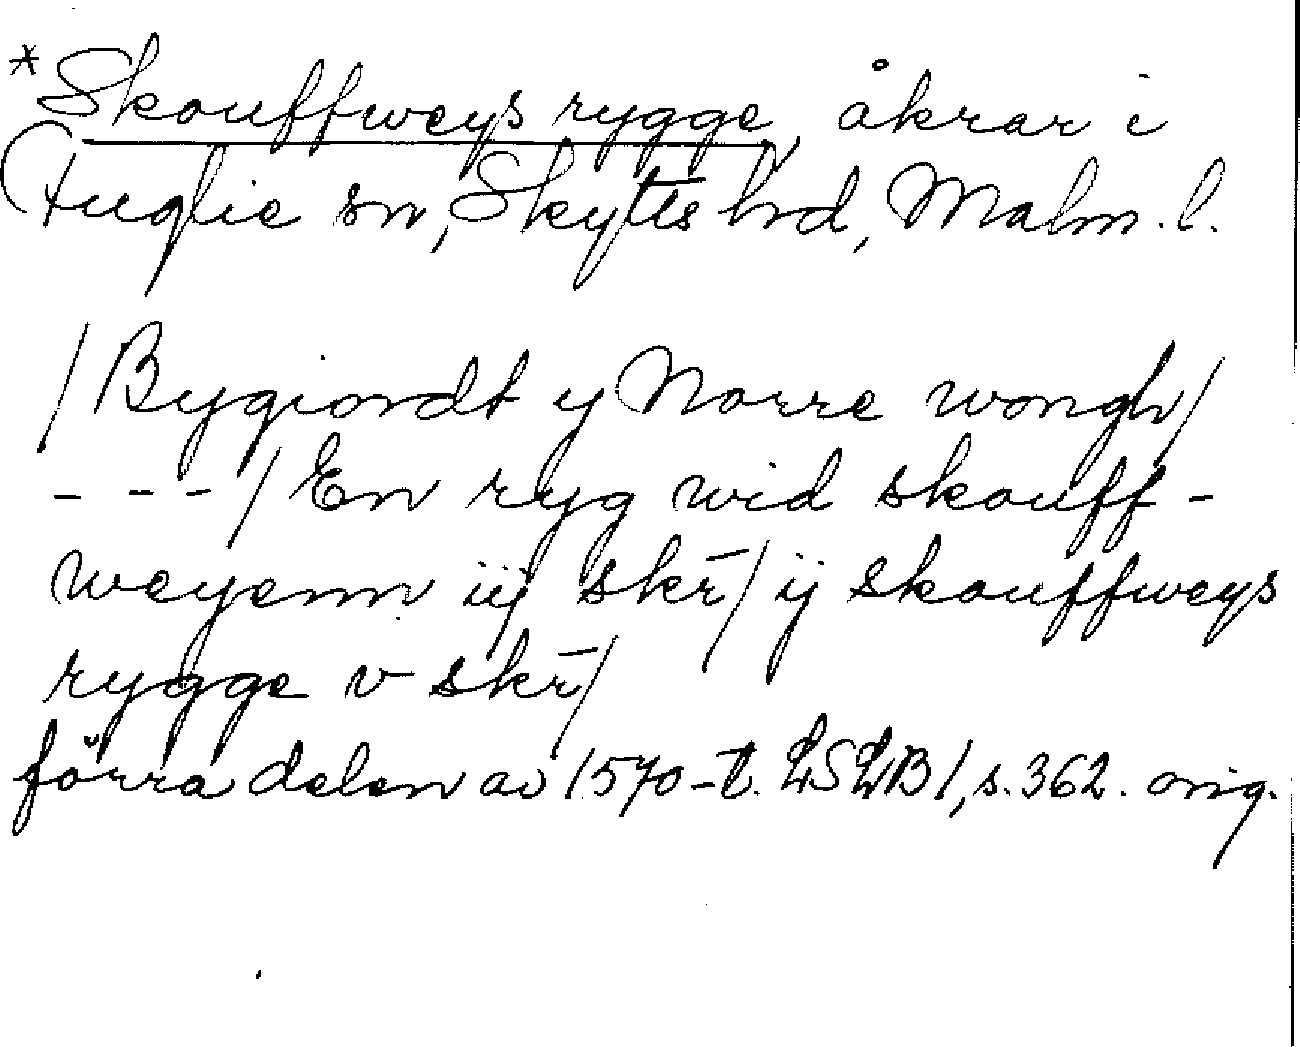 *Skouffweys rygge, åkrar i
Fuglie sn, Skytts hrd, Malm. l.
/Bygiordt y Norre wongh/
- - - / En ryg wid skouff-
weyenn iij skr̄/ ij skouffweys
rygge v skr̄/
förra delen av 1570-t. LSLB 1, s. 362. orig.